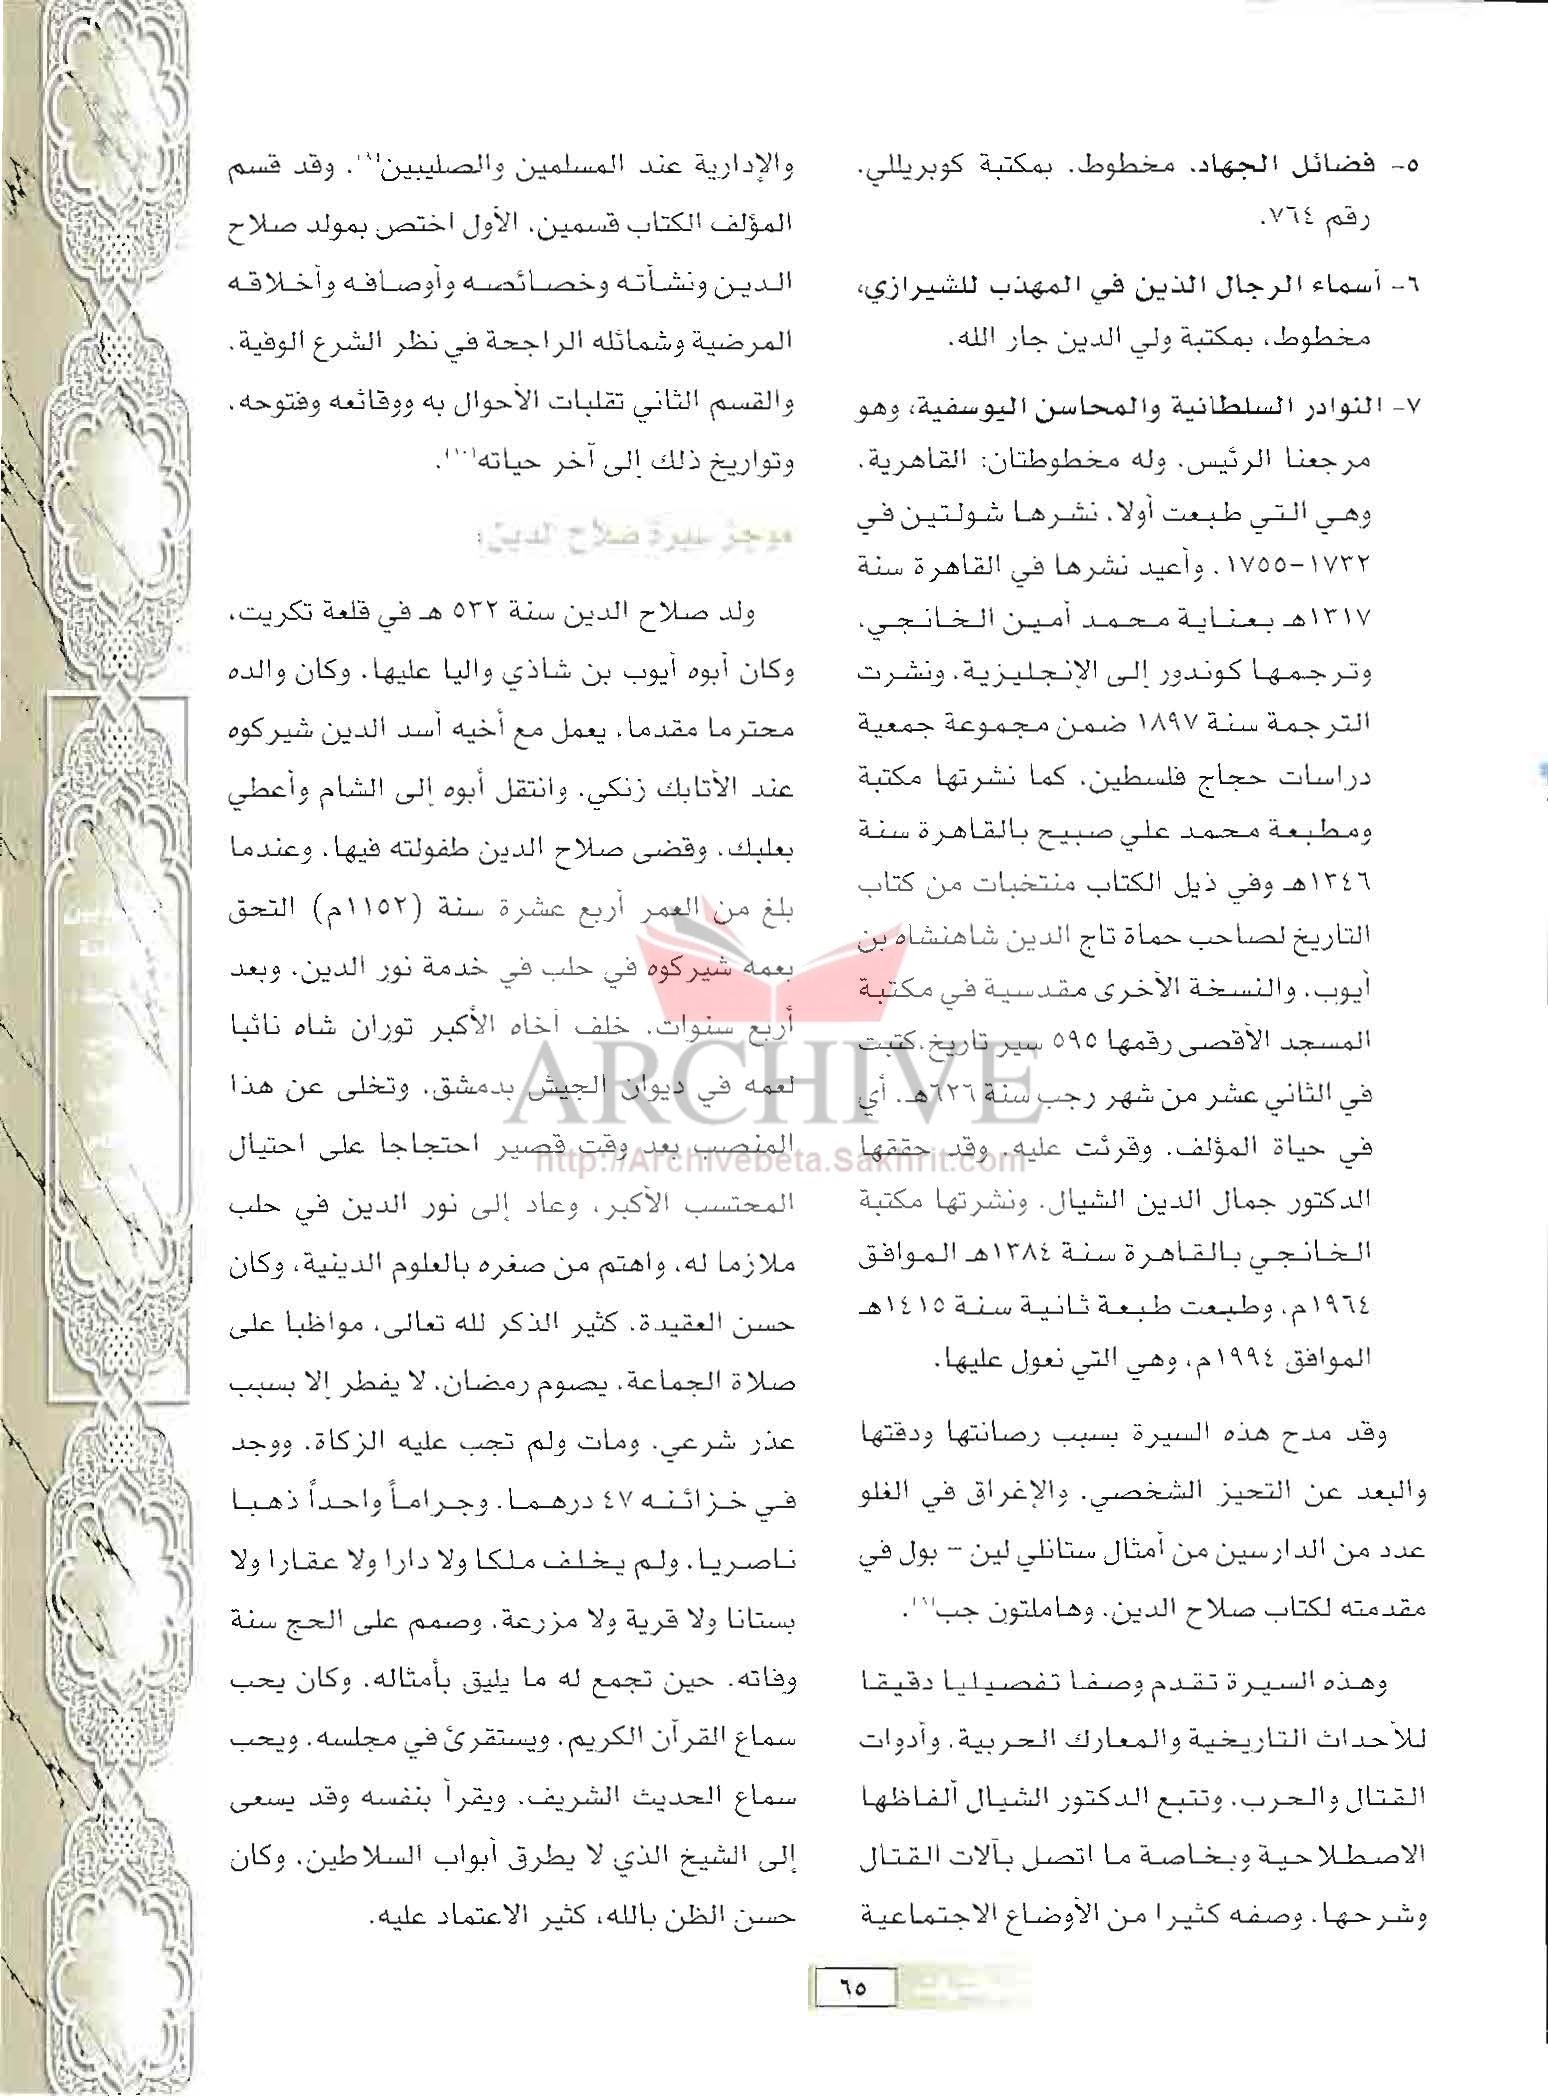 ٥- فضائل الجهاد، مخطوط، بمكتبة كوبريللي،
رقم ٧٦٤.
٦- أسماء الرجال الذين في المهذب للشيرازي،
مخطوط، بمكتبة ولي الدين جار الله.
٧- النوادر السلطانية والمحاسن اليوسفية، وهو
مرجعنا الرئيس، وله مخطوطتان: القاهرية،
وهي التي طبعت أولا، نشرها شولتين في
١٧٣٢-١٧٥٥، وأعيد نشرها في القاهرة سنة
١٣١٧هـ بعناية محمد أمين الخانجي،
وترجمها كوندور إلى الإنجليزية، ونشرت
الترجمة سنة ١٨٩٧ ضمن مجموعة جمعية
دراسات حجاج فلسطين، كما نشرتها مكتبة
ومطبعة محمد علي صبيح بالقاهرة سنة
١٣٤٦هـ وفي ذيل الكتاب منتخبات من كتاب
التاريخ لصاحب حماة تاج الدين شاهنشاه بن
أيوب، والنسخة الأخرى مقدسية في مكتبة
المسجد الأقصى رقمها ٥٩٥ سير تاريخ، كتبت
في الثاني عشر من شهر رجب سنة ٦٢٦هـ، أي
في حياة المؤلف، وقرئت عليه، وقد حققها
الدكتور جمال الدين الشيال، ونشرتها مكتبة
الخانجي بالقاهرة سنة ١٣٨٤هـ الموافق
١٩٦٤م، وطبعت طبعة ثانية سنة ١٤١٥هـ
الموافق ١٩٩٤م، وهي التي نعول عليها.
وقد مدح هذه السيرة بسبب رصانتها ودقتها
والبعد عن التحيز الشخصي، والإغراق في الغلو
عدد من الدارسين من أمثال ستانلي لين - بول في
مقدمته لكتاب صلاح الدين، وهاملتون جب.
وهذه السيرة تقدم وصفا تفصيليا دقيقا
للأحداث التاريخية والمعارك الحربية، وأدوات
القتال والحرب، وتتبع الدكتور الشيال ألفاظها
الاصطلاحية وبخاصة ما اتصل بآلات القتال
وشرحها، وصفه كثيرا من الأوضاع الاجتماعية
والإدارية عند المسلمين والصليبين(٩). وقد قسم
المؤلف الكتاب قسمين، الأول اختص بمولد صلاح
الدين ونشأته وخصائصه وأوصافه وأخلاقه
المرضية وشمائله الراجحة في نظر الشرع الوفية،
والقسم الثاني تقلبات الأحوال به ووقائعه وفتوحه،
وتواريخ ذلك إلى آخر حياته(١٠).
موجز سيرة صلاح الدين:
ولد صلاح الدين سنة ٥٣٢ هـ في قلعة تكريت،
وكان أبوه أيوب بن شاذي واليا عليها، وكان والده
محترما مقدما، يعمل مع أخيه أسد الدين شيركوه
عند الأتابك زنكي، وانتقل أبوه إلى الشام وأعطي
بعلبك، وقضى صلاح الدين طفولته فيها، وعندما
بلغ من العمر أربع عشرة سنة (١١٥٢م) التحق
بعمه شيركوه في حلب في خدمة نور الدين، وبعد
أربع سنوات، خلف أخاه الأكبر توران شاه نائبا
لعمه في ديوان الجيش بدمشق، وتخلى عن هذا
المنصب بعد وقت قصير احتجاجا على احتيال
المحتسب الأكبر، وعاد إلى نور الدين في حلب
ملازما له، واهتم من صغره بالعلوم الدينية، وكان
حسن العقيدة، كثير الذكر لله تعالى، مواظبا على
صلاة الجماعة، يصوم رمضان، لا يفطر إلا بسبب
عذر شرعي، ومات ولم تجب عليه الزكاة، ووجد
في خزائنه ٤٧ درهما، وجراماً واحداً ذهبا
ناصريا، ولم يخلف ملكا ولا دارا ولا عقارا ولا
بستانا ولا قرية ولا مزرعة، وصمم على الحج سنة
وفاته، حين تجمع له ما يليق بأمثاله، وكان يحب
سماع القرآن الكريم، ويستقرئ في مجلسه، ويحب
سماع الحديث الشريف، ويقرأ بنفسه وقد يسعى
إلى الشيخ الذي لا يطرق أبواب السلاطين، وكان
حسن الظن بالله، كثير الاعتماد عليه.
ARCHIVE
http://Archivebeta.Sakhrit.com
٦٥